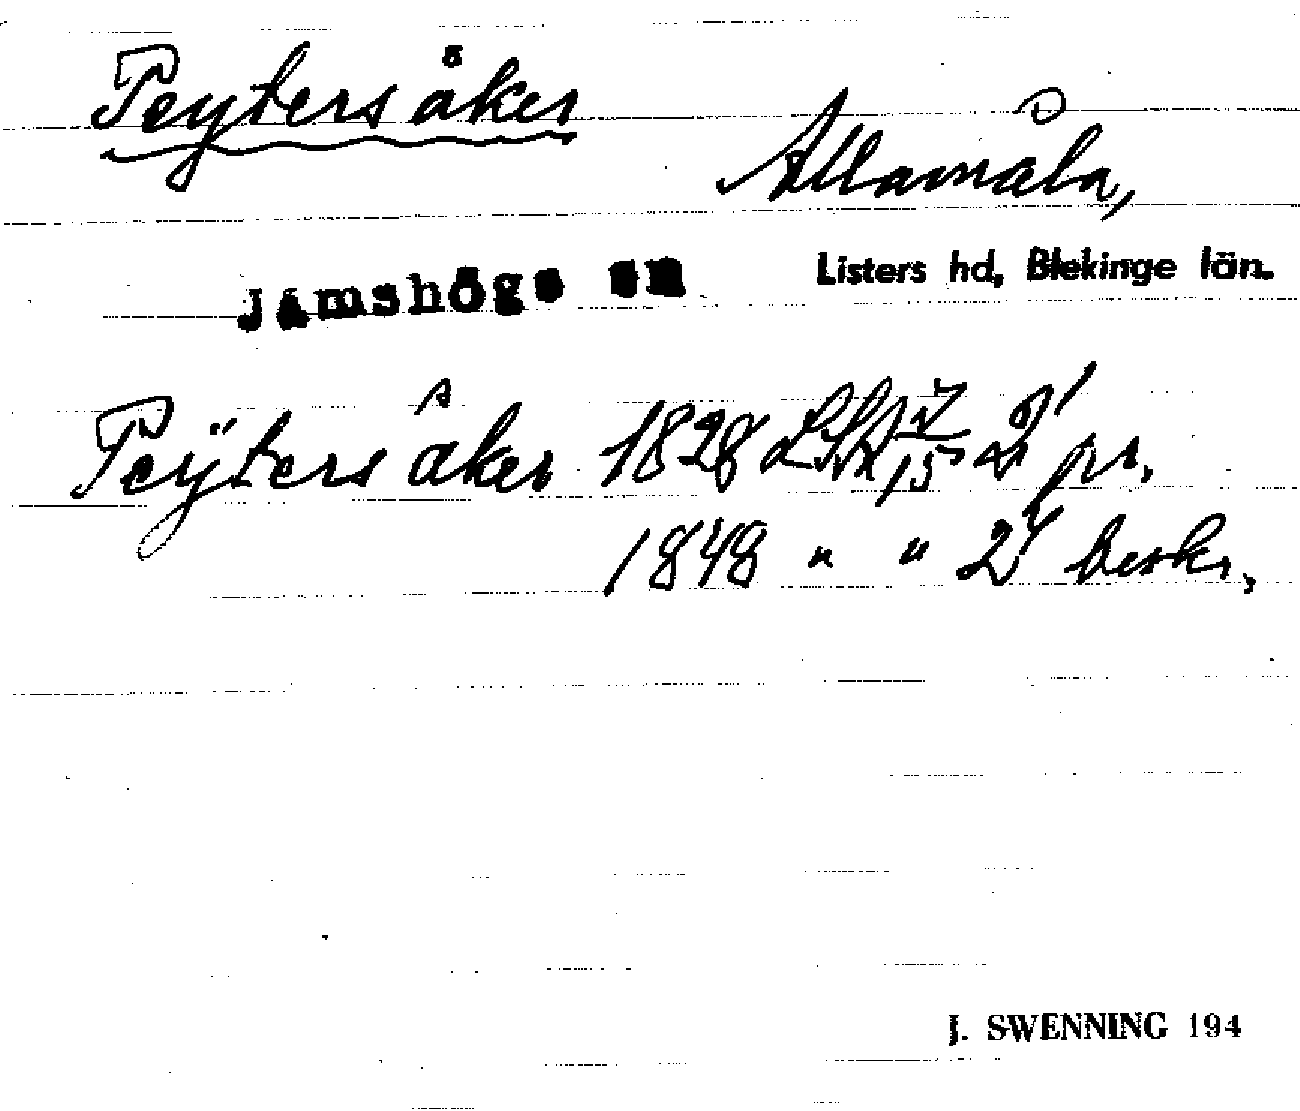 Peytersåker
Allamåla,
Jämshögs sn Listers hd, Blekinge län.
Peÿtersåker 1828 LSA 7/15 2' pr.
1848 " " 24 beskr.
J. SWENNING 194